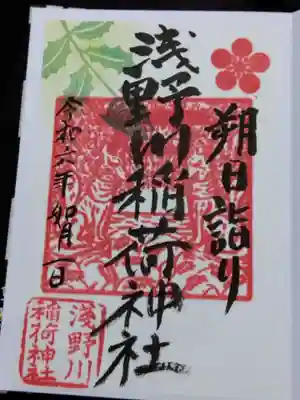 朔日詣り
浅野川稲荷神社
令和六年 如月 一日
浅野川
稲荷神社